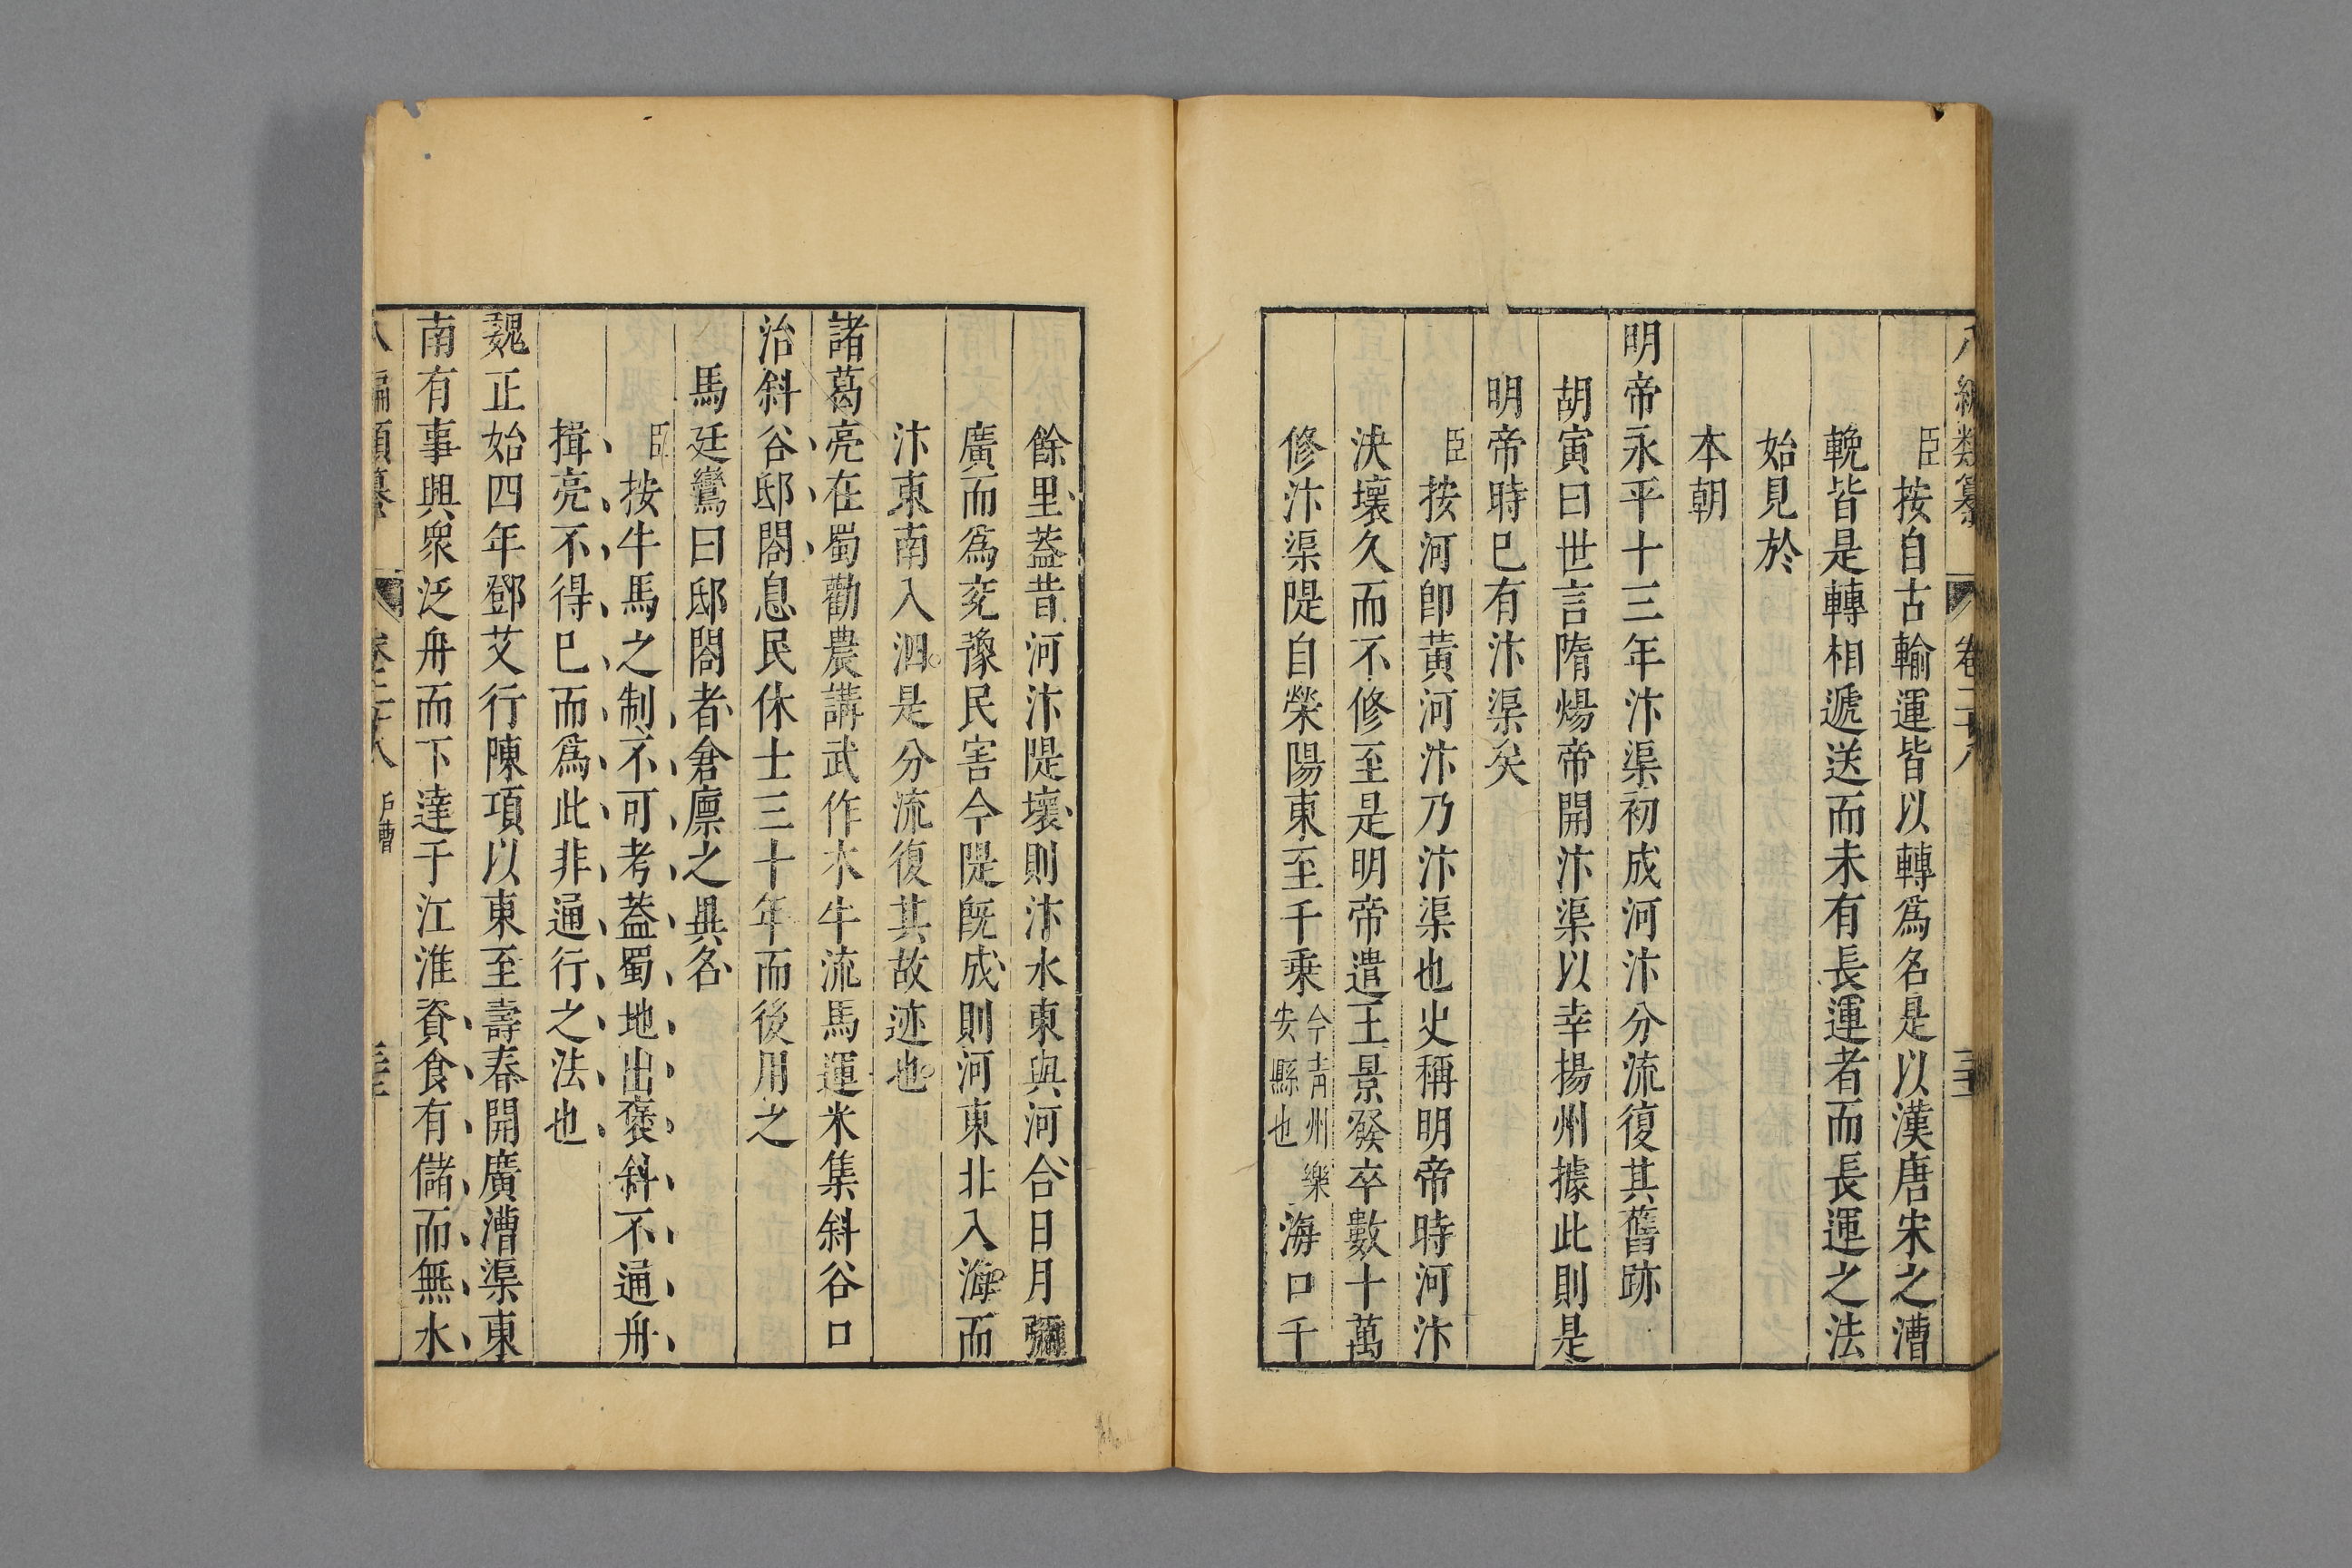 八編類纂 卷二十八
臣按自古輸運皆以轉爲名是以漢唐宋之漕
輓皆是轉相遞送而未有長運者而長運之法
始見於
本朝
明帝永平十三年汴渠初成河汴分流復其舊跡
胡寅曰世言隋煬帝開汴渠以幸揚州據此則是
明帝時巳有汴渠矣
臣按河卽黃河汴乃汴渠也史稱明帝時河汴
決壞久而不修至是明帝遣王景發卒數十萬
修汴渠隄自滎陽東至千乗今靑州樂安縣也海口千
餘里葢昔河汴隄壞則汴水東與河合日月彌
廣而爲兗豫民害今隄旣成則河東北入海而
汴東南入泗是分流復其故迹也
諸葛亮在蜀勸農講武作木牛流馬運米集斜谷口
治斜谷邸閣息民休士三十年而後用之
馬廷鸞曰邸閣者倉廪之異名
臣按牛馬之制不可考葢蜀地出褒斜不通舟
揖亮不得巳而爲此非通行之法也
魏正始四年鄧艾行陳項以東至壽春開廣漕渠東
南有事興衆泛舟而下達于江淮資食有儲而無水
八編類纂 卷二十八 戶漕